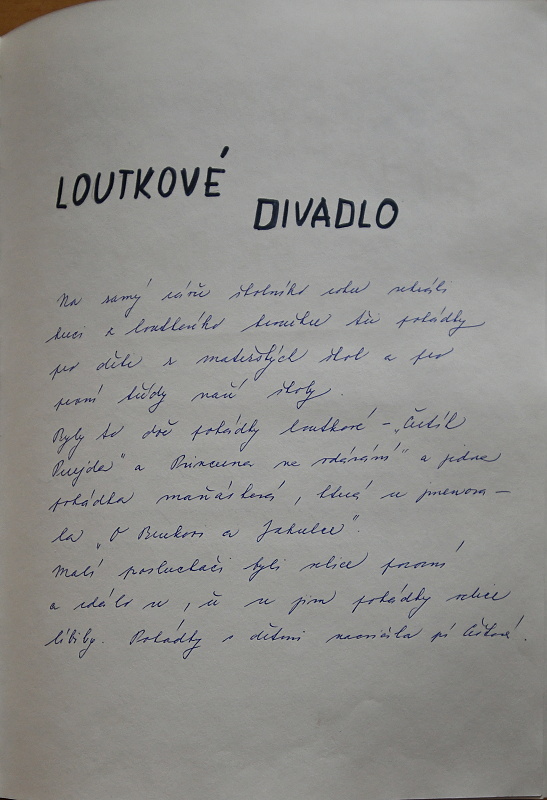 LOUTKOVÉ
DIVADLO
Na samý závěr školního roku sehráli
žáci z loutkového kroužku tři pohádky
pro děti z mateřských škol a pro
první třídy naší školy.
Byly to dvě pohádky loutkové – „Čertík
" a Princezna na vdávání" a jedna
pohádka maňásková, která se jmenova–
la „O Brukovi a Jahulce".
Malí posluchači byli velice pozorní
a zdálo se, že se jim pohádky velice
líbily. Pohádky s dětmi nacvičila pí